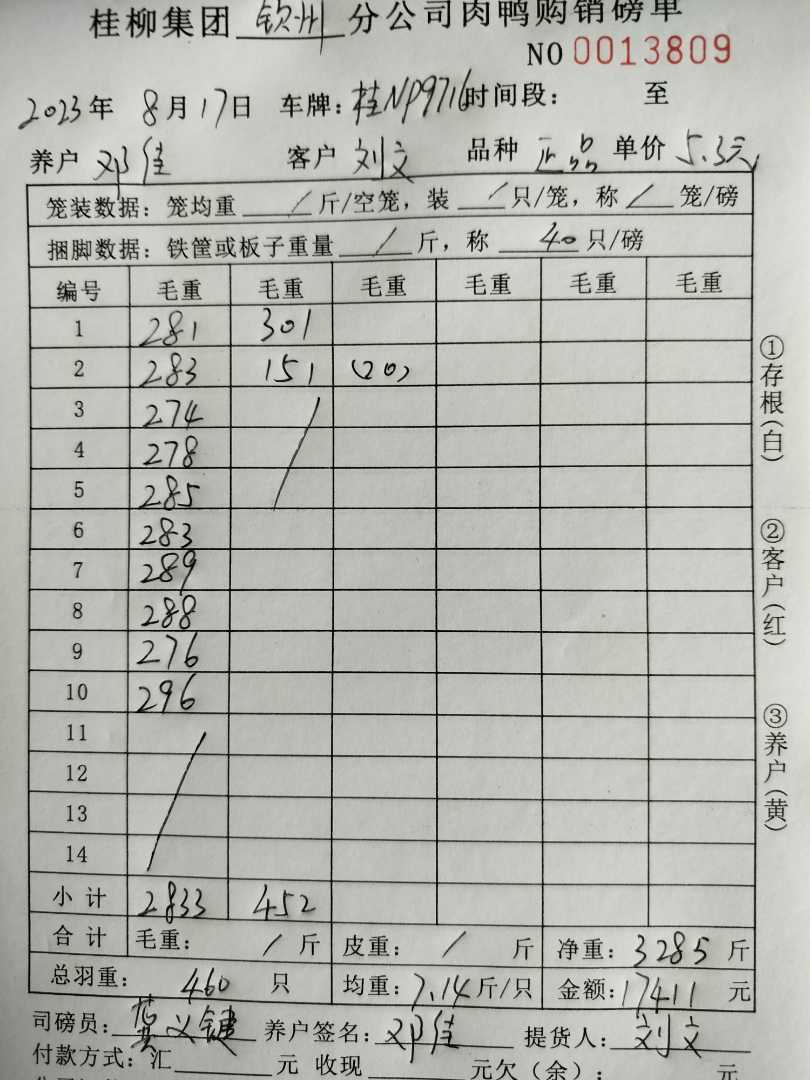 桂柳集团 钦州 分公司肉鸭购销磅单
NO 0013809
2023年 8月17日 车牌:桂NP9716时间段: 至
养户 邓佳 客户 刘文 品种 正品 单价 5.3元
笼装数据:笼均重 / 斤/空笼,装 / 只/笼,称 / 笼/磅
捆脚数据:铁筐或板子重量 / 斤,称 40 只/磅
编号 毛重 毛重 毛重 毛重 毛重 毛重
1 281 301
2 283 151 (20)
3 274
4 278
5 285
6 283
7 289
8 288
9 276
10 296
11
12
13
14
小计 2833 452
合计 毛重: / 斤 皮重: / 斤 净重: 3285 斤
总羽重: 460 只 均重: 7.14 斤/只 金额: 17411 元
司磅员: 义键 养户签名: 邓佳 提货人: 刘文
付款方式:汇 元 收现 元欠(余): 元
①存根(白)
②客户(红)
③养户(黄)